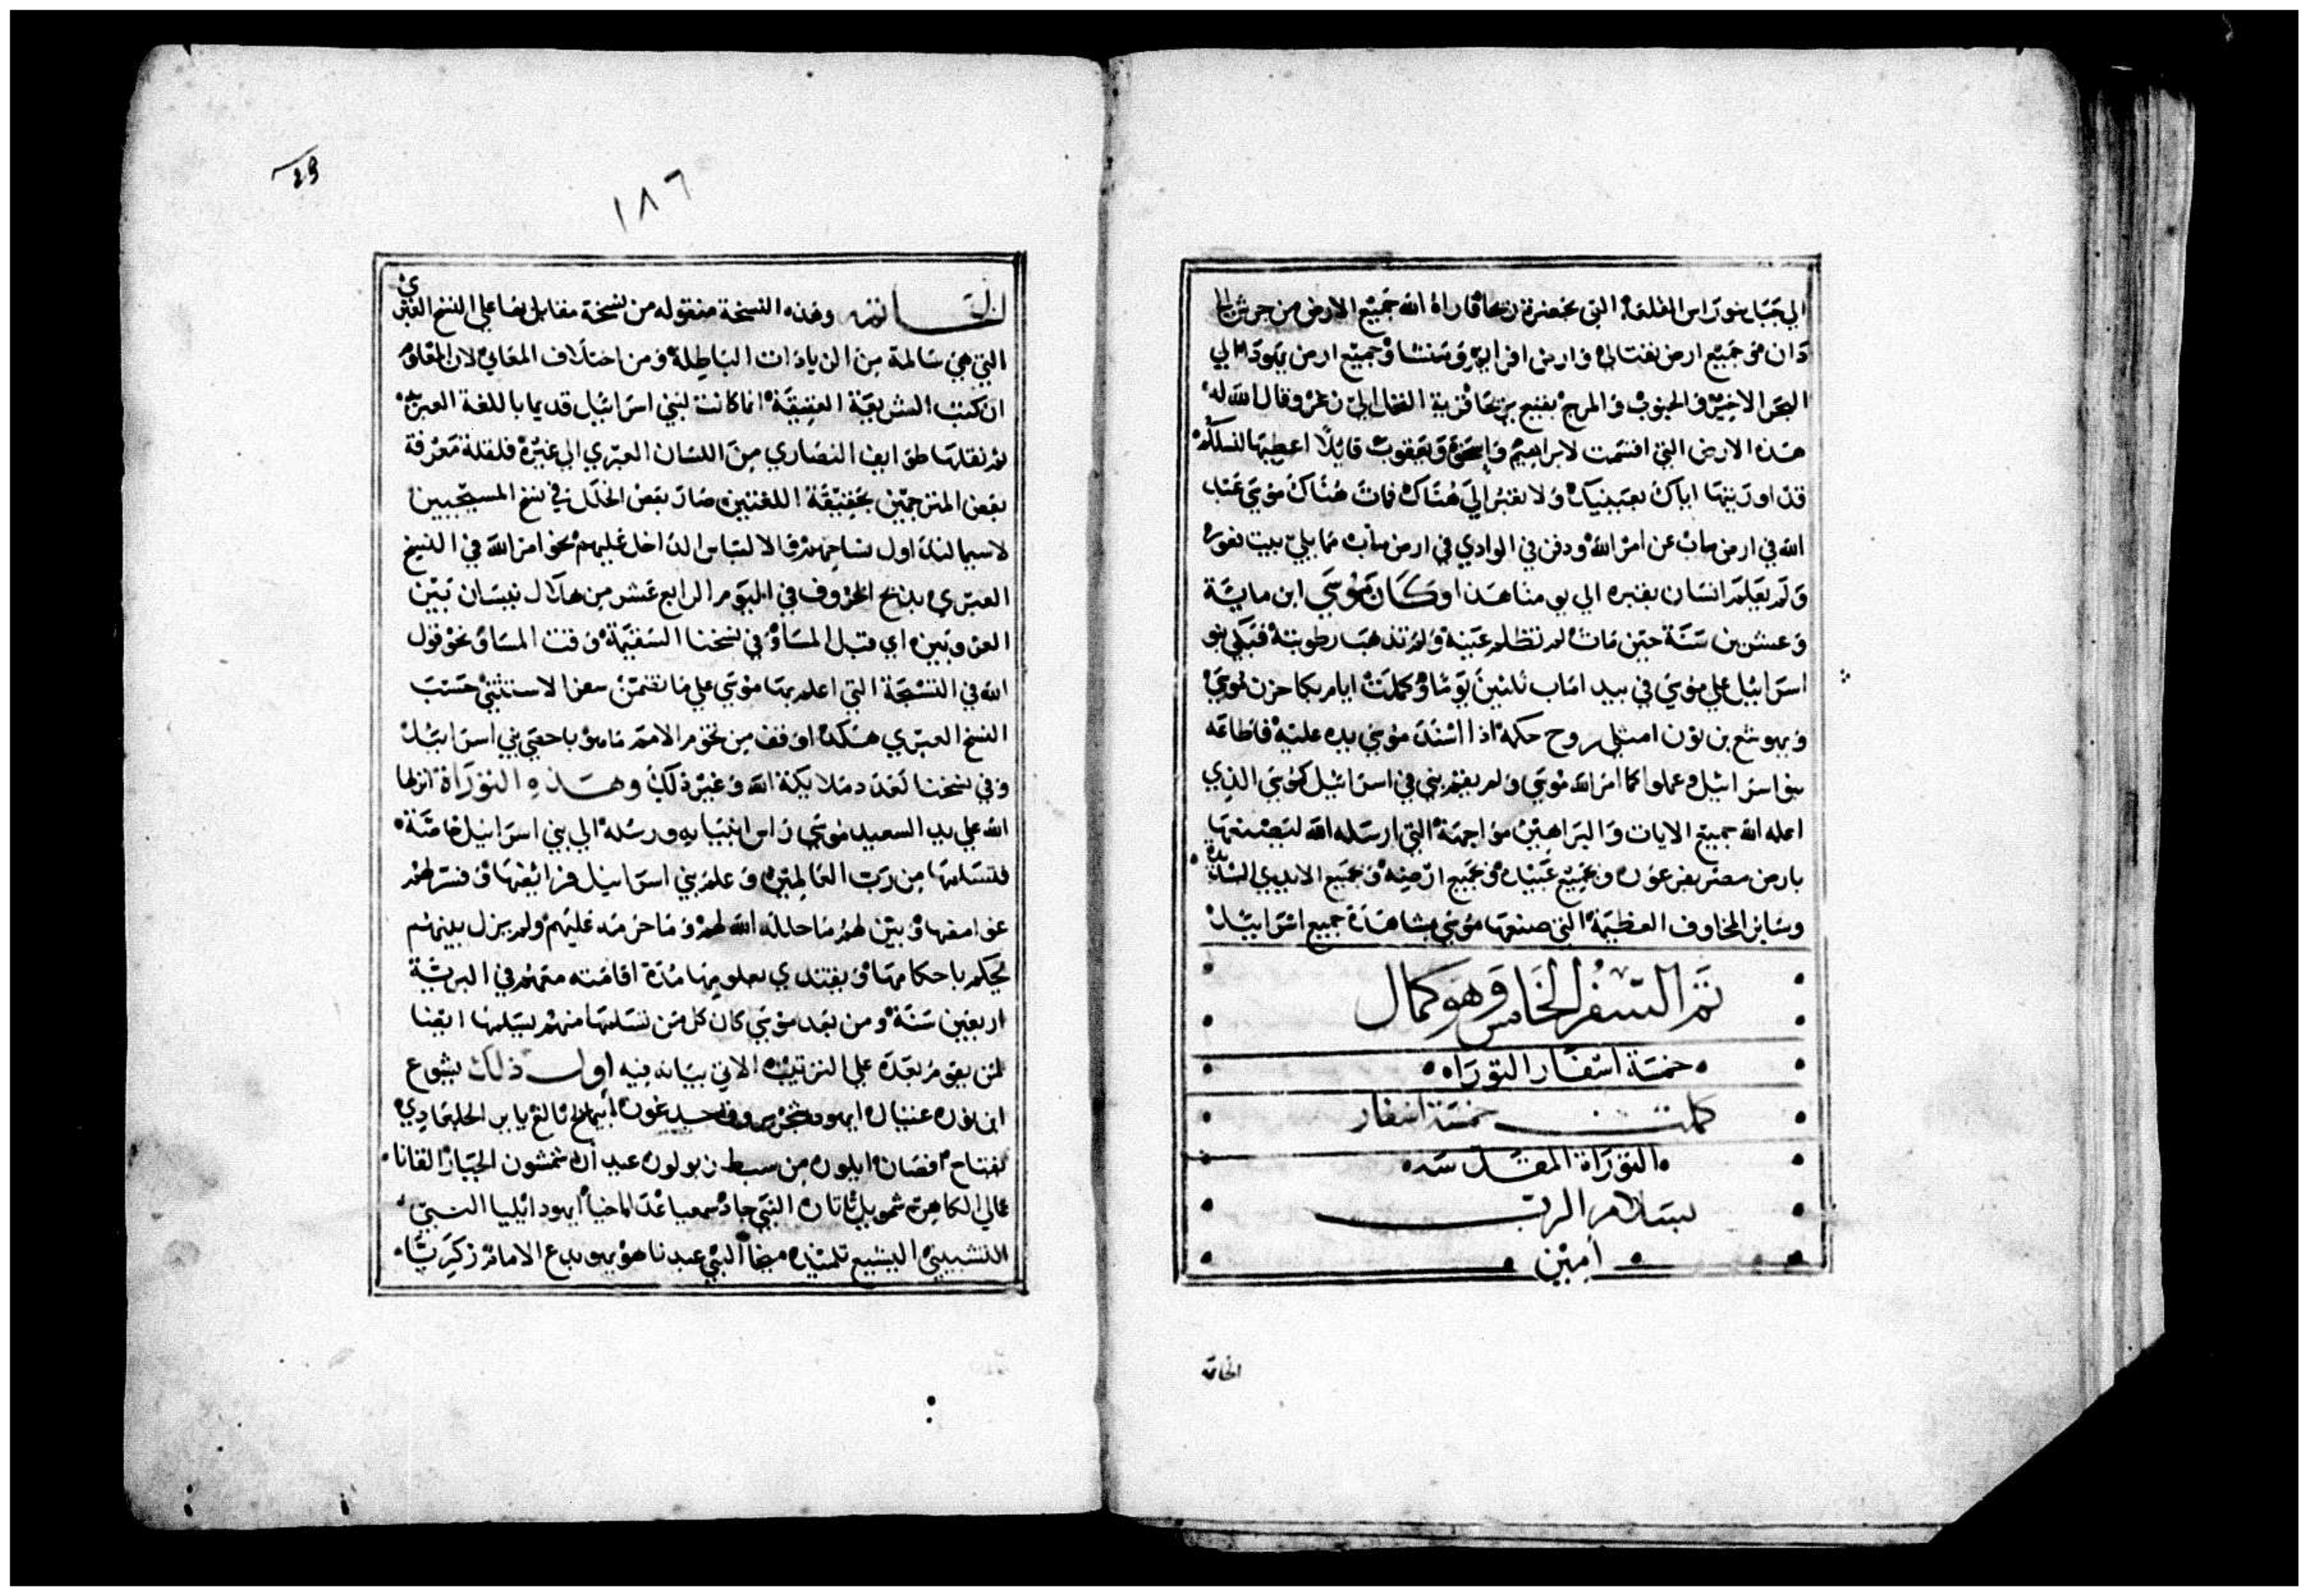 الي جبال نبو راس القلعة التي بحضرة ريحا فاراه الله جميع الارض من جرش الي
دان وجميع ارض نفتالي وارض افرايم ومنشا وجميع ارض يهودا الي
البحر الاخير والجنوب والمرج بقيع ريحا قرية النخل الي زغر وقال الله له
هذه الارض التي اقسمت لابراهيم واسحق ويعقوب قايلًا اعطيها لنسلكم
قد اوريتها اياك بعينيك ولا تعبر الي هناك فات هناك موسي عبد
الله في ارض ماب عن امر الله ودفن في الوادي في ارض ماب مما يلي بيت فغور
ولم يعلم انسان بقبره الي يومنا هذا وكان موسي ابن ماية
وعشرين سنة حين مات لم تظلم عينه ولم تذهب رطوبته فبكي بنو
اسراييل علي موسي في بيدا ماب ثلثين يومًا وكملت ايام بكا حزن موسي
ويهوشع بن نون امتلي روح حكمه اذا اسند موسي يده عليه فاطاعه
بنو اسرائيل وعملوا كما امر الله موسي ولم يقم نبي في اسرائيل كموسي الذي
اعلمه الله جميع الايات والبراهين مواجهة التي ارسله الله ليصنعها
بارض مصر بفرعون وجميع عبيده وجميع ارضه وجميع الايدي الشديدة
وساير المخاوف العظيمة التي صنعها موسي بمشاهدة جميع اسراييل
تم السفر الخامس وهو كمال
خمسة اسفار التوراه
كملت خمسة اسفار
التوراة المقدسه
بسلام الرب
امين
الخاتمه
١٨٦
الخاتمه وهذه النسخة منقوله من نسخة مقابل بها علي النسخ العبري
التي هي سالمة من الزيادات الباطلة ومن اختلاف المعاني لان المعلوم
ان كتب الشريعة العتيقة انما كانت لبني اسرائيل قديما باللغة العبريه
ثم نقلتها طوايف النصاري من اللسان العبري الي غيره فلقلة معرفة
بعض المترجمين بحقيقة اللغتين صار بعض الخلل في نسخ المسيحيين
لاسيما لتداول نساخهم والالتباس الداخل عليهم نحو امر الله في النسخ
العبري بذبح الخروف في اليوم الرابع عشر من هلال نيسان بين
الغروبين اي قبل المساء وفي نسخنا السقيمة وقت المساء ونحو قول
الله في التسبحة التي اعلم بها موسي علي ما تضمن سفر الاستثني حسب
النسخ العبري هكذا اوقف من تخوم الامم ما هو باحصي بني اسرائيل
وفي نسخنا لعدد ملايكة الله وغير ذلك وهذه التوراة انزلها
الله علي يد السعيد موسي راس انبيايه ورسله الي بني اسرائيل خاصة
فتسلمها من رب العالمين وعلم بني اسرائيل فرائضها وفسر لهم
غوامضها وبين لهم ما حلله الله لهم وما حرمه عليهم ولم يزل بينهم
يحكم باحكامها ويقتدي بعلومها مدة اقامته معهم في البرية
اربعين سنة ومن بعد موسي كان كل من تسلمها منهم يسلمها ايضا
لمن يقوم بعده علي الترتيب الاتي بيانه فيه اول ذلك يشوع
ابن نون عثنيال ايهود شمجر جدعون ابيمالخ تالغ يابر الجلعادي
يفتاح افصان ايلون من سبط زبولون عبدان شمشون الجبار القانا
عالي الكاهن شمويل ناتان النبي جاد شمعيا عدا احيا ايهود ائليا النبي
التشبيتي اليشيع تلميذه ميخا النبي عبدنا هو يهويدع الامام زكريا